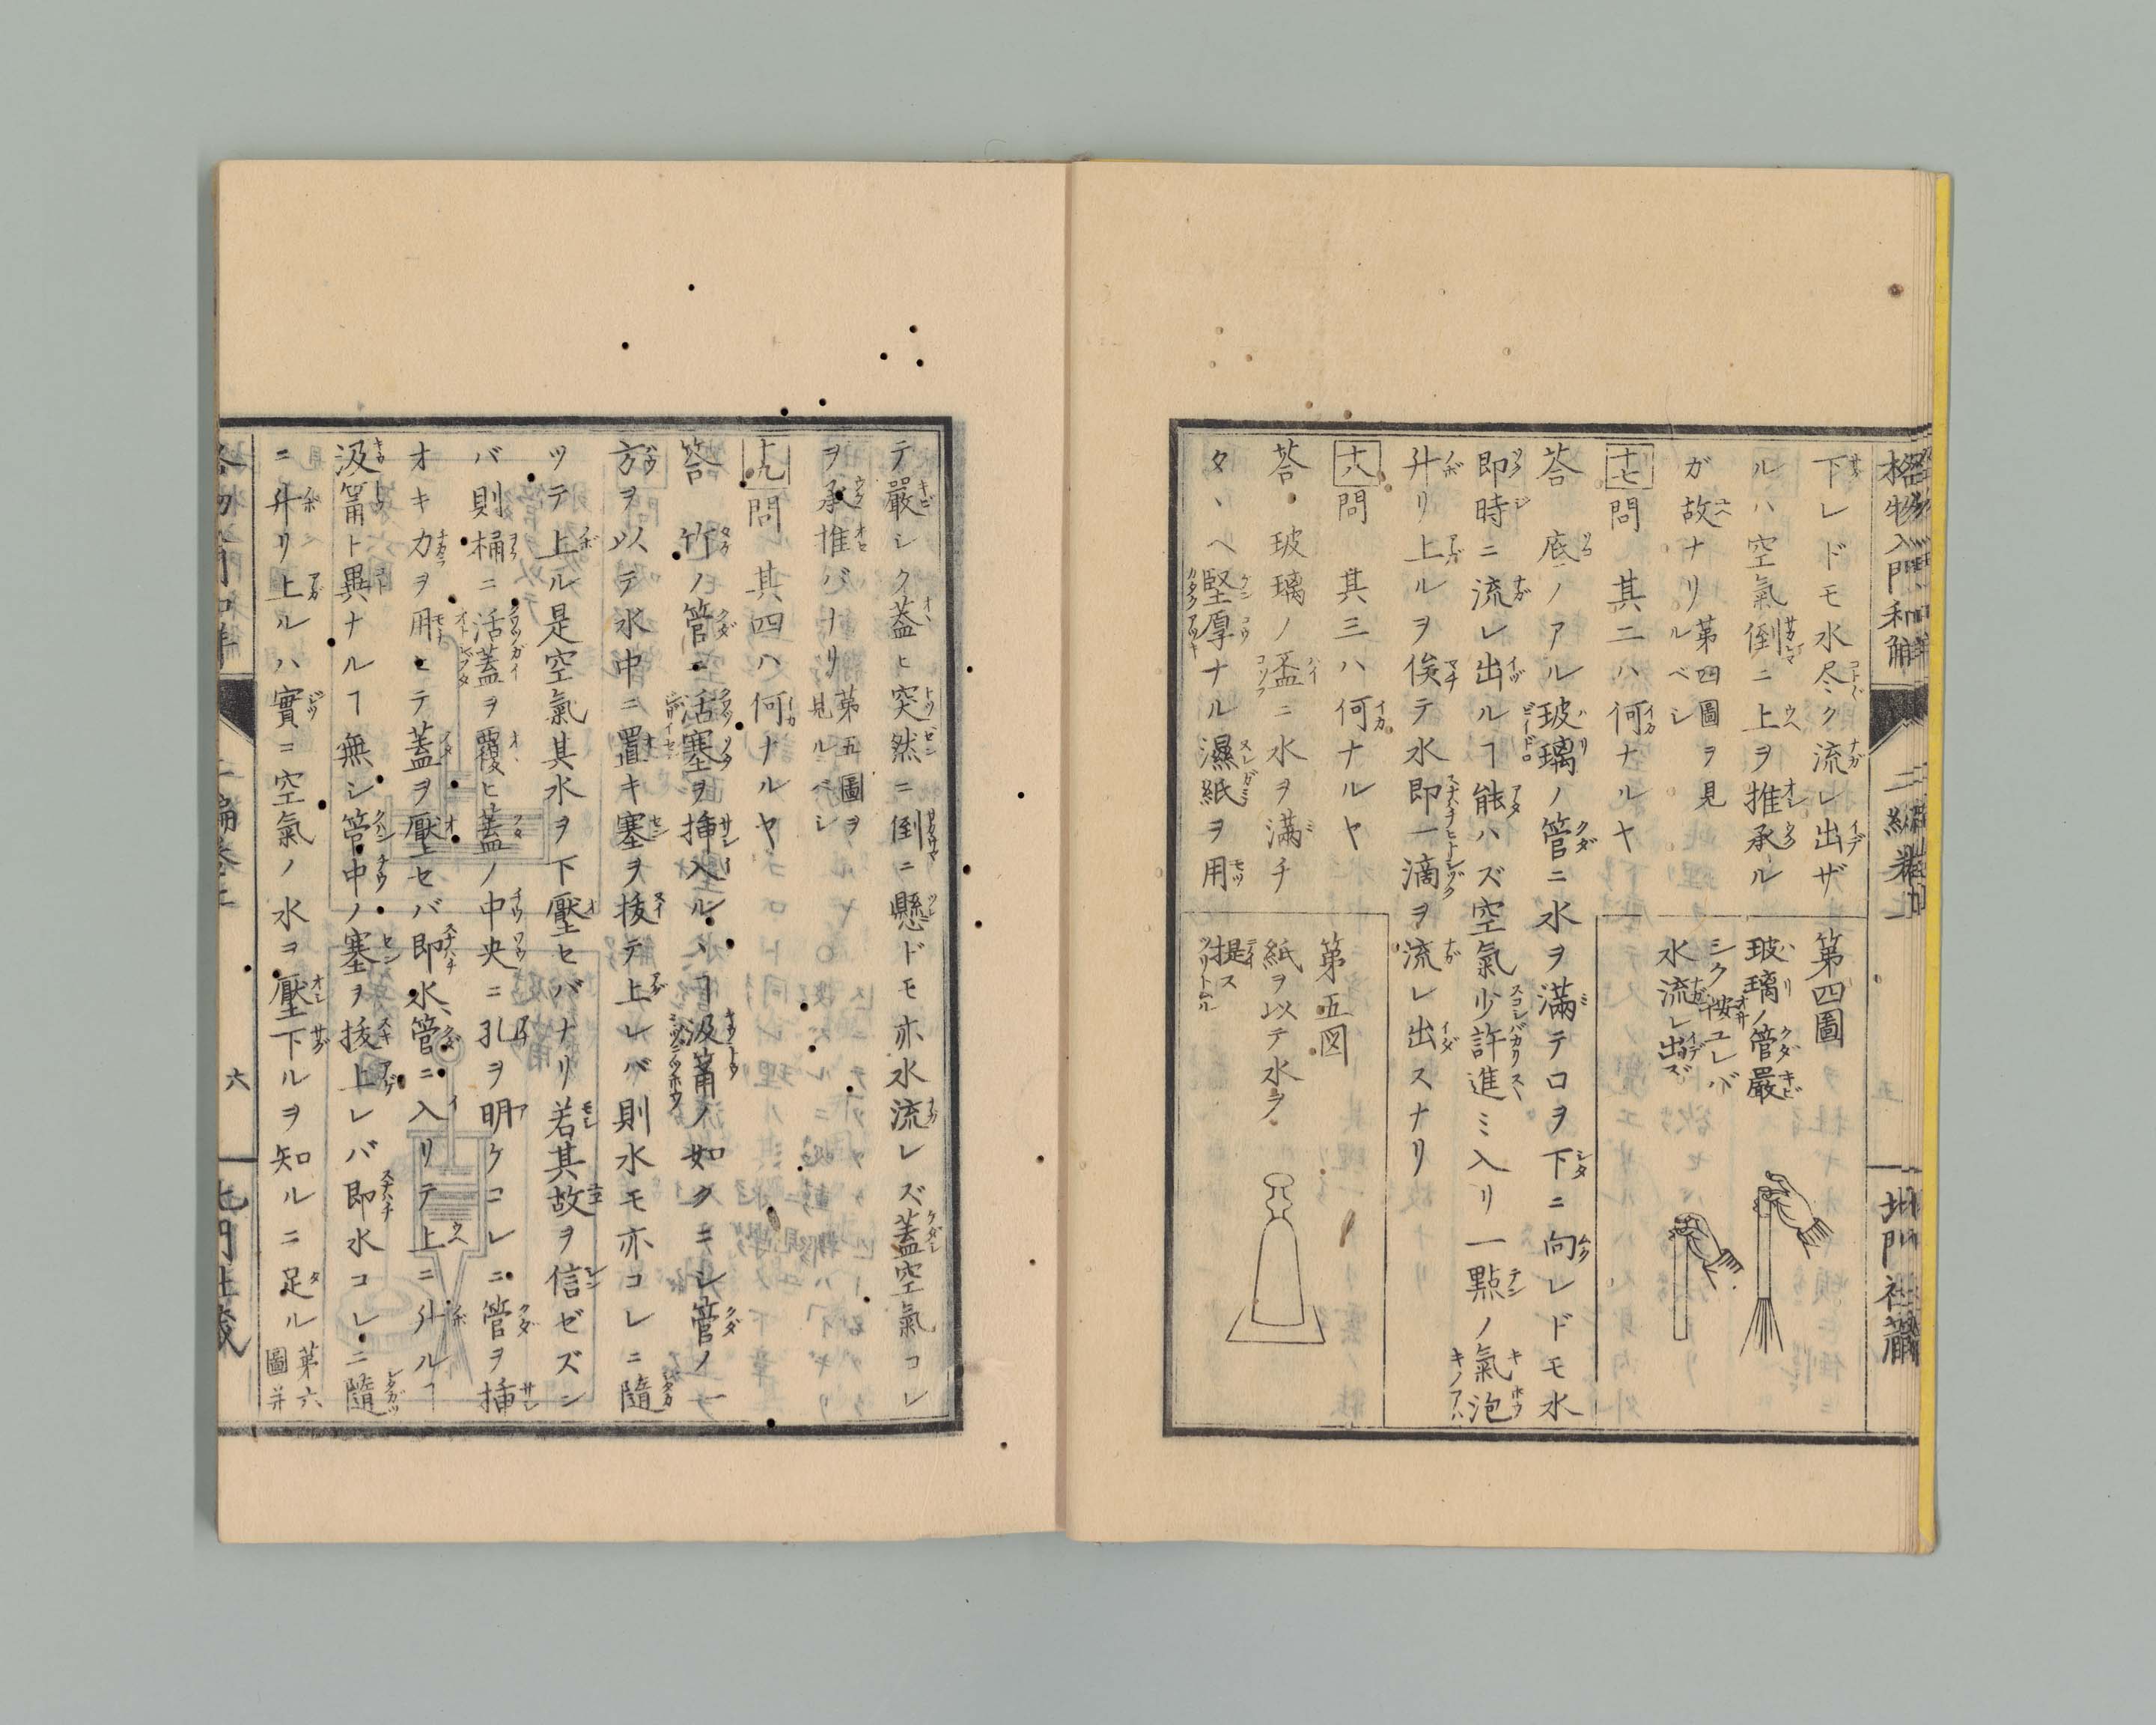 格物入門和解
二編巻上
北門社蔵
下レドモ水尽ク流レ出ザ
ルハ空氣倒ニ上ヲ推承ル
ガ故ナリ第四圖ヲ見ルベシ
十七問 其二ハ何ナルヤ
答 底ノアル玻璃ノ管ニ水ヲ滿テ口ヲ下ニ向レドモ水
即時ニ流レ出ルヿ能ハズ空氣少許進ミ入リ一點ノ氣泡
升リ上ルヲ俟テ水即一滴ヲ流レ出スナリ
十八問 其三ハ何ナルヤ
答 玻璃ノ盃ニ水ヲ滿チ
タヽヘ堅厚ナル濕紙ヲ用
第四圖
玻璃ノ管嚴
シク按ユレバ
水流レ出ズ
第五図
紙ヲ以テ水ヲ
提ス
テ嚴シク蓋ヒ突然ニ倒ニ懸ドモ亦水流レズ蓋空氣コレ
ヲ承推バナリ第五圖ヲ見ルベシ
十九問 其四ハ何ナルヤ
答 竹ノ管ニ活塞ヲ挿入ルヽヿ汲筩ノ如クニシ管ノ一
方ヲ以テ水中ニ置キ塞ヲ拔テ上レバ則水モ亦コレニ隨
ツテ上ル是空氣其水ヲ下壓セバナリ若其故ヲ信ゼズン
バ則桶ニ活蓋ヲ覆ヒ蓋ノ中央ニ孔ヲ明ケコレニ管ヲ挿
オキ力ヲ用ヒテ蓋ヲ壓セバ即水管ニ入リテ上ニ升ルヿ
汲筩ト異ナルヿ無シ管中ノ塞ヲ拔上レバ即水コレニ隨
ニ升リ上ルハ實ニ空氣ノ水ヲ壓下ルヲ知ルニ足ル第六圖并
六